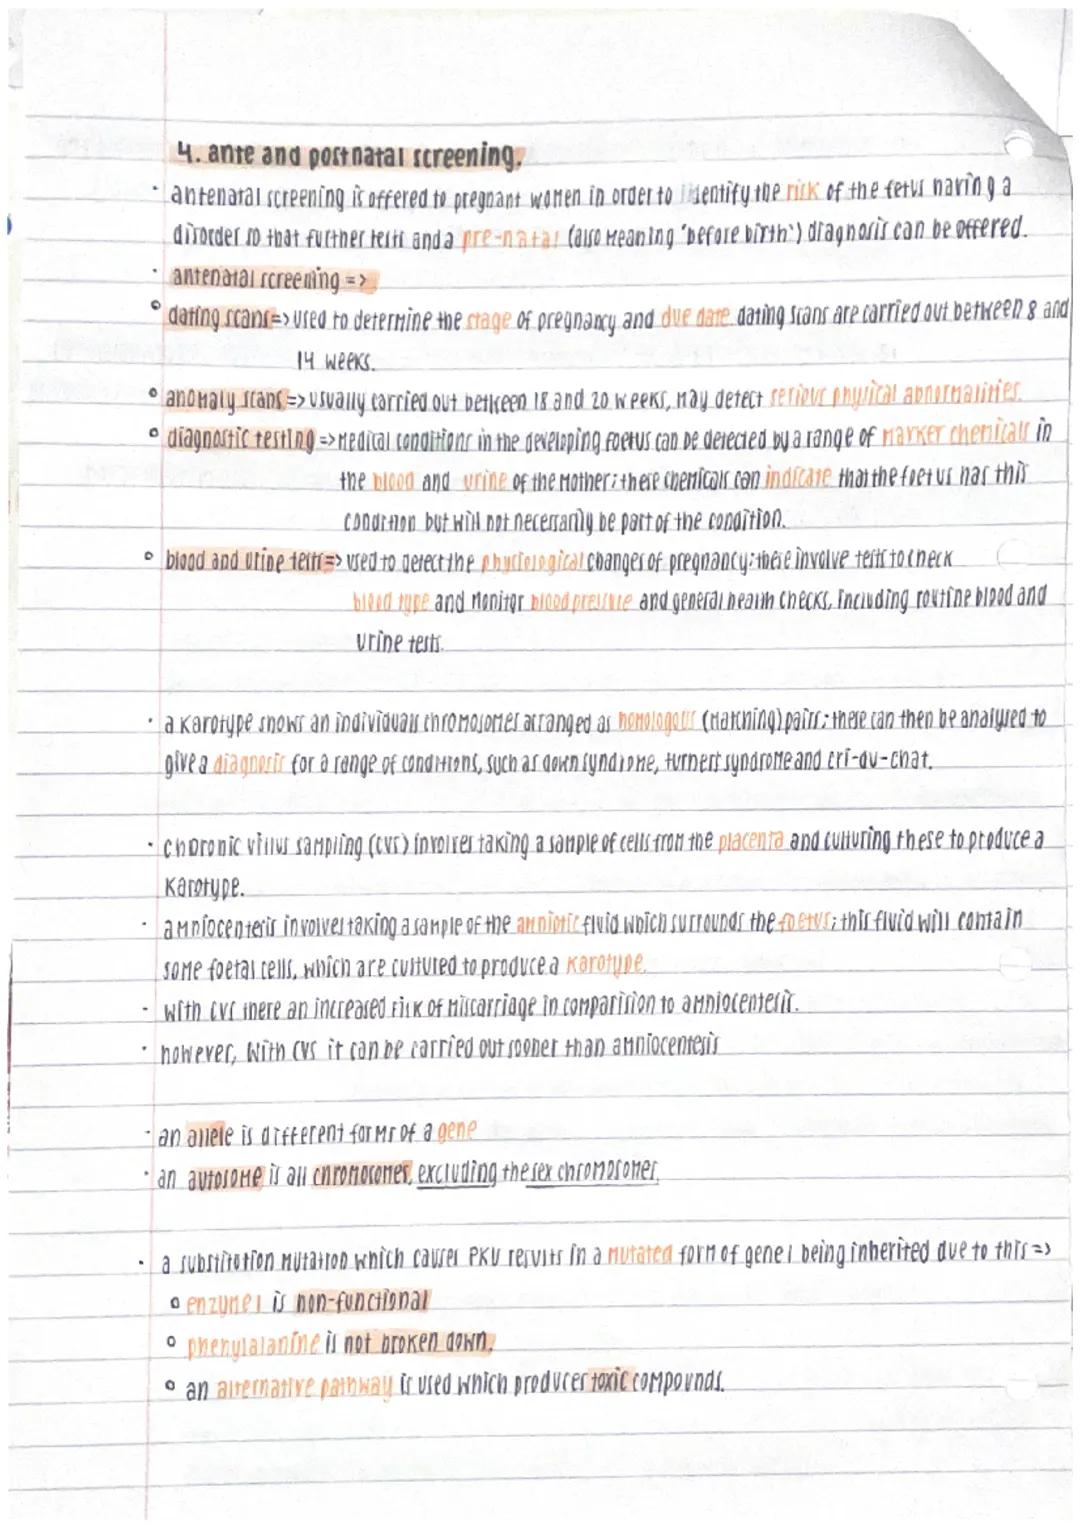 4. ante and postnatal screening.
· antenatal screening is offered to pregnant women in order to identify the risk of the fetus having a
disorder so that further tests and a pre-natal (also meaning 'before birth') diagnosis can be offered.
· antenatal screening =>
° dating scans => used to determine the stage of pregnancy and due date. dating scans are carried out between 8 and
14 weeks.
° anomaly scans => usually carried out between 18 and 20 weeks, may detect serious physical abnormalities.
° diagnostic testing => medical conditions in the developing foetus can be detected by a range of marker chemicals in
the blood and urine of the mother; these chemicals can indicate that the foetus has this
condition but will not necessarily be part of the condition.
° blood and urine tests => used to detect the physiological changes of pregnancy; these involve tests to check
blood type and monitor blood pressure and general health checks, including routine blood and
urine tests.
· a karotype shows an individuals chromosomes arranged as homologous (matching) pairs; these can then be analysed to
give a diagnosis for a range of conditions, such as down syndrome, turners syndrome and cri-du-chat.
· choronic villus sampling (CVS) involves taking a sample of cells from the placenta and culturing these to produce a
karotype.
· amniocentesis involves taking a sample of the amniotic fluid which surrounds the foetus; this fluid will contain
some foetal cells, which are cultured to produce a karotype.
- with CVS there an increased risk of miscarriage in comparision to amniocentesis.
· however, with CVS it can be carried out sooner than amniocentesis
· an allele is different forms of a gene
· an autosome is all chromosomes, excluding the sex chromosomes.
· a substitution mutation which causes PKU results in a mutated form of gene 1 being inherited due to this =>
° enzyme 1 is non-functional
° phenylalanine is not broken down.
° an alternative pathway is used which produces toxic compounds.